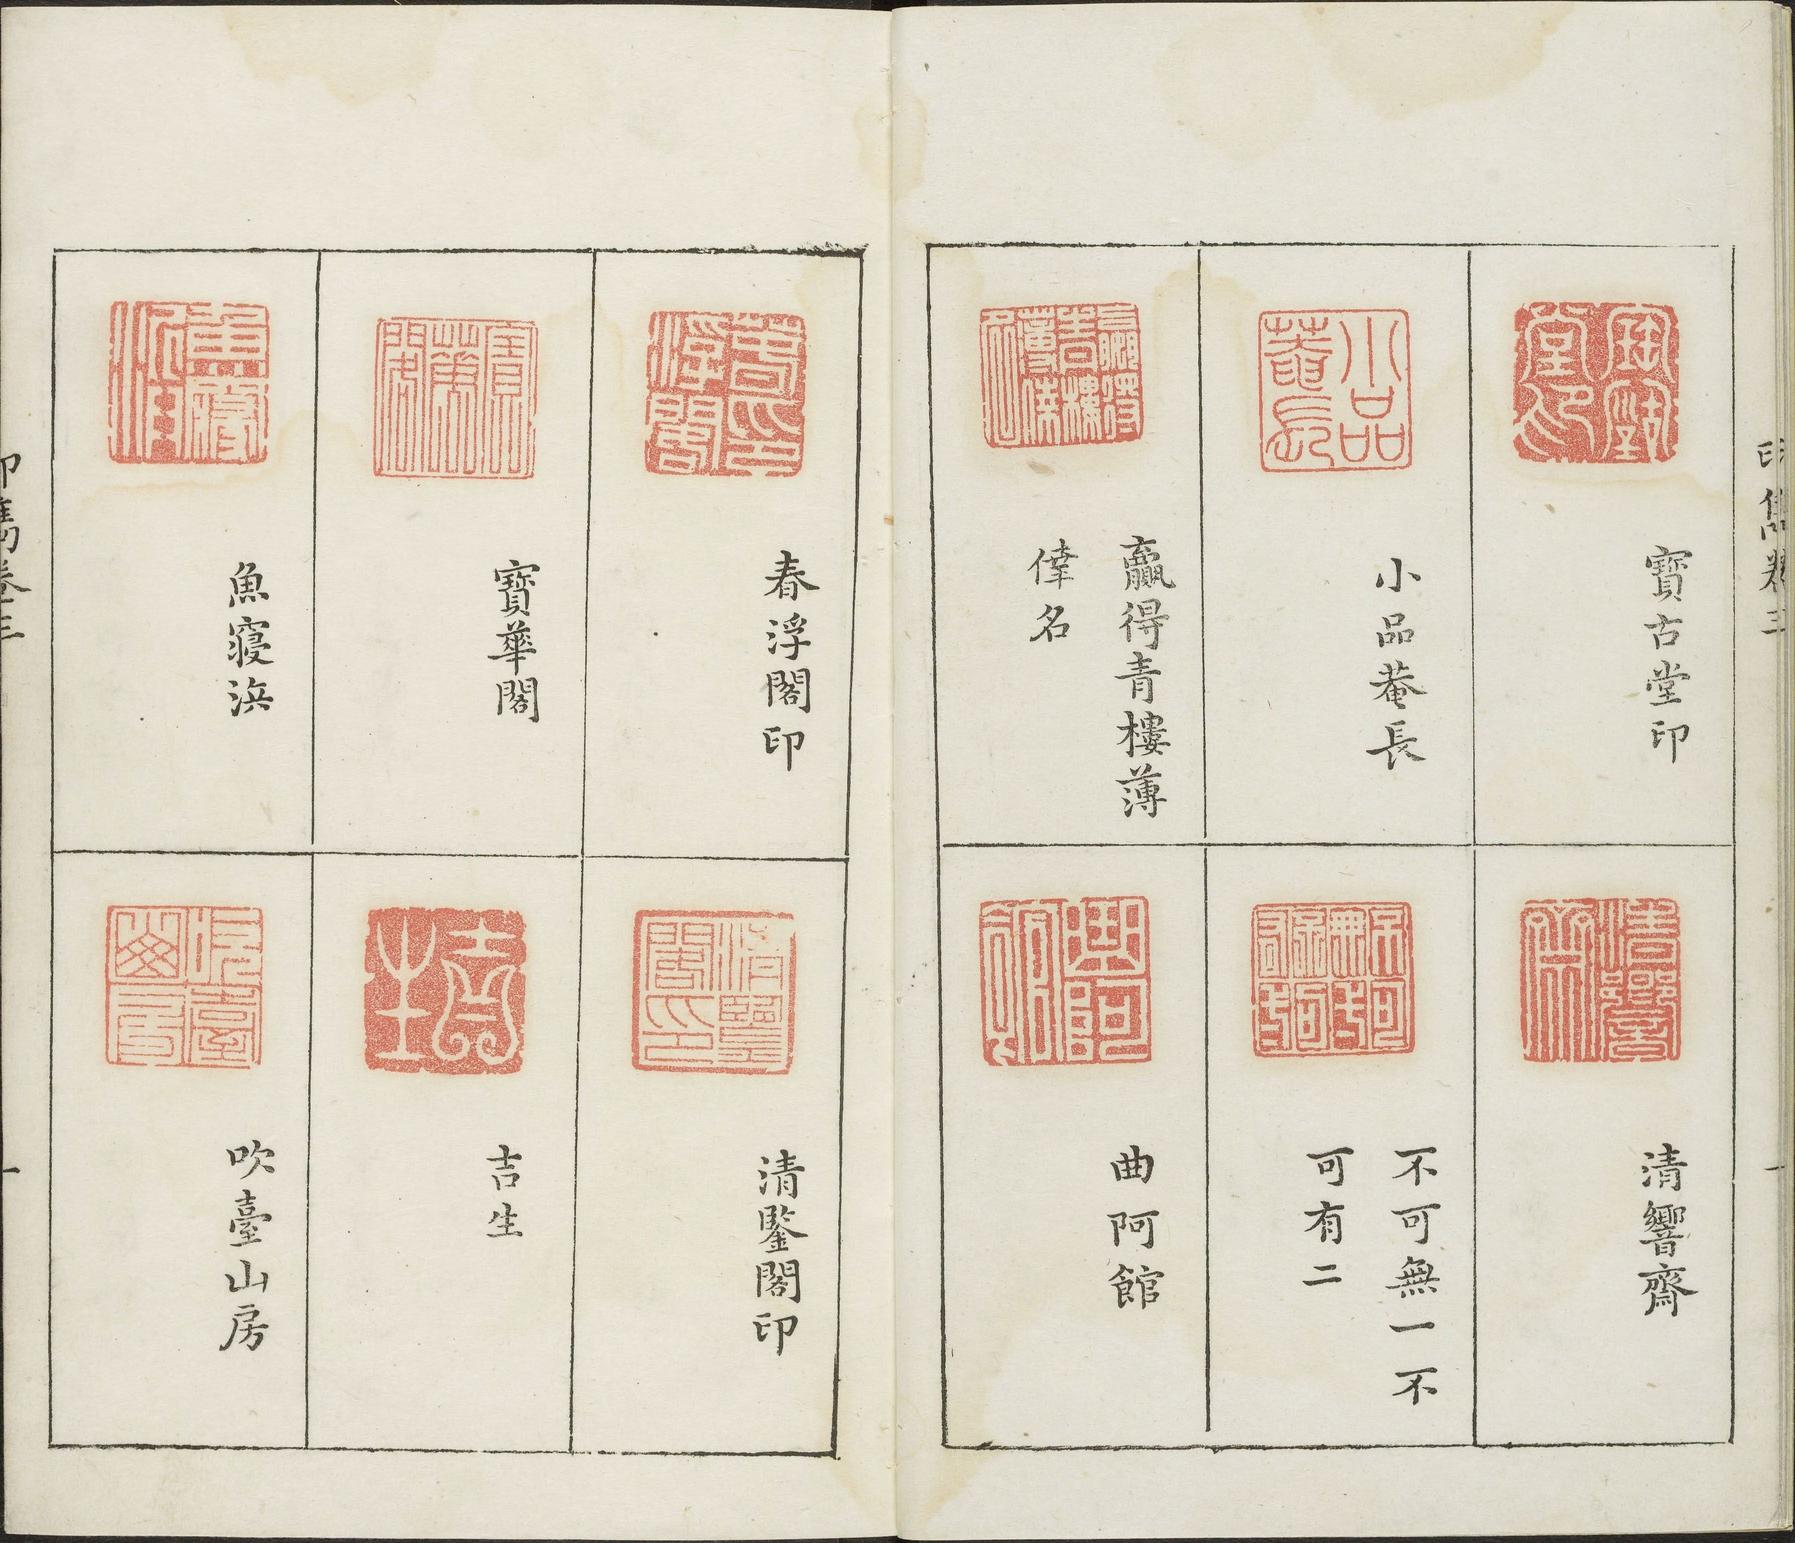 印雋卷三
寶古堂印
小品菴長
贏得青樓薄
倖名
清響齋
不可無一不
可有二
曲阿館
一
春浮閣印
寶華閣
魚寢浜
清鑒閣印
吉生
吹臺山房
印雋卷三
一